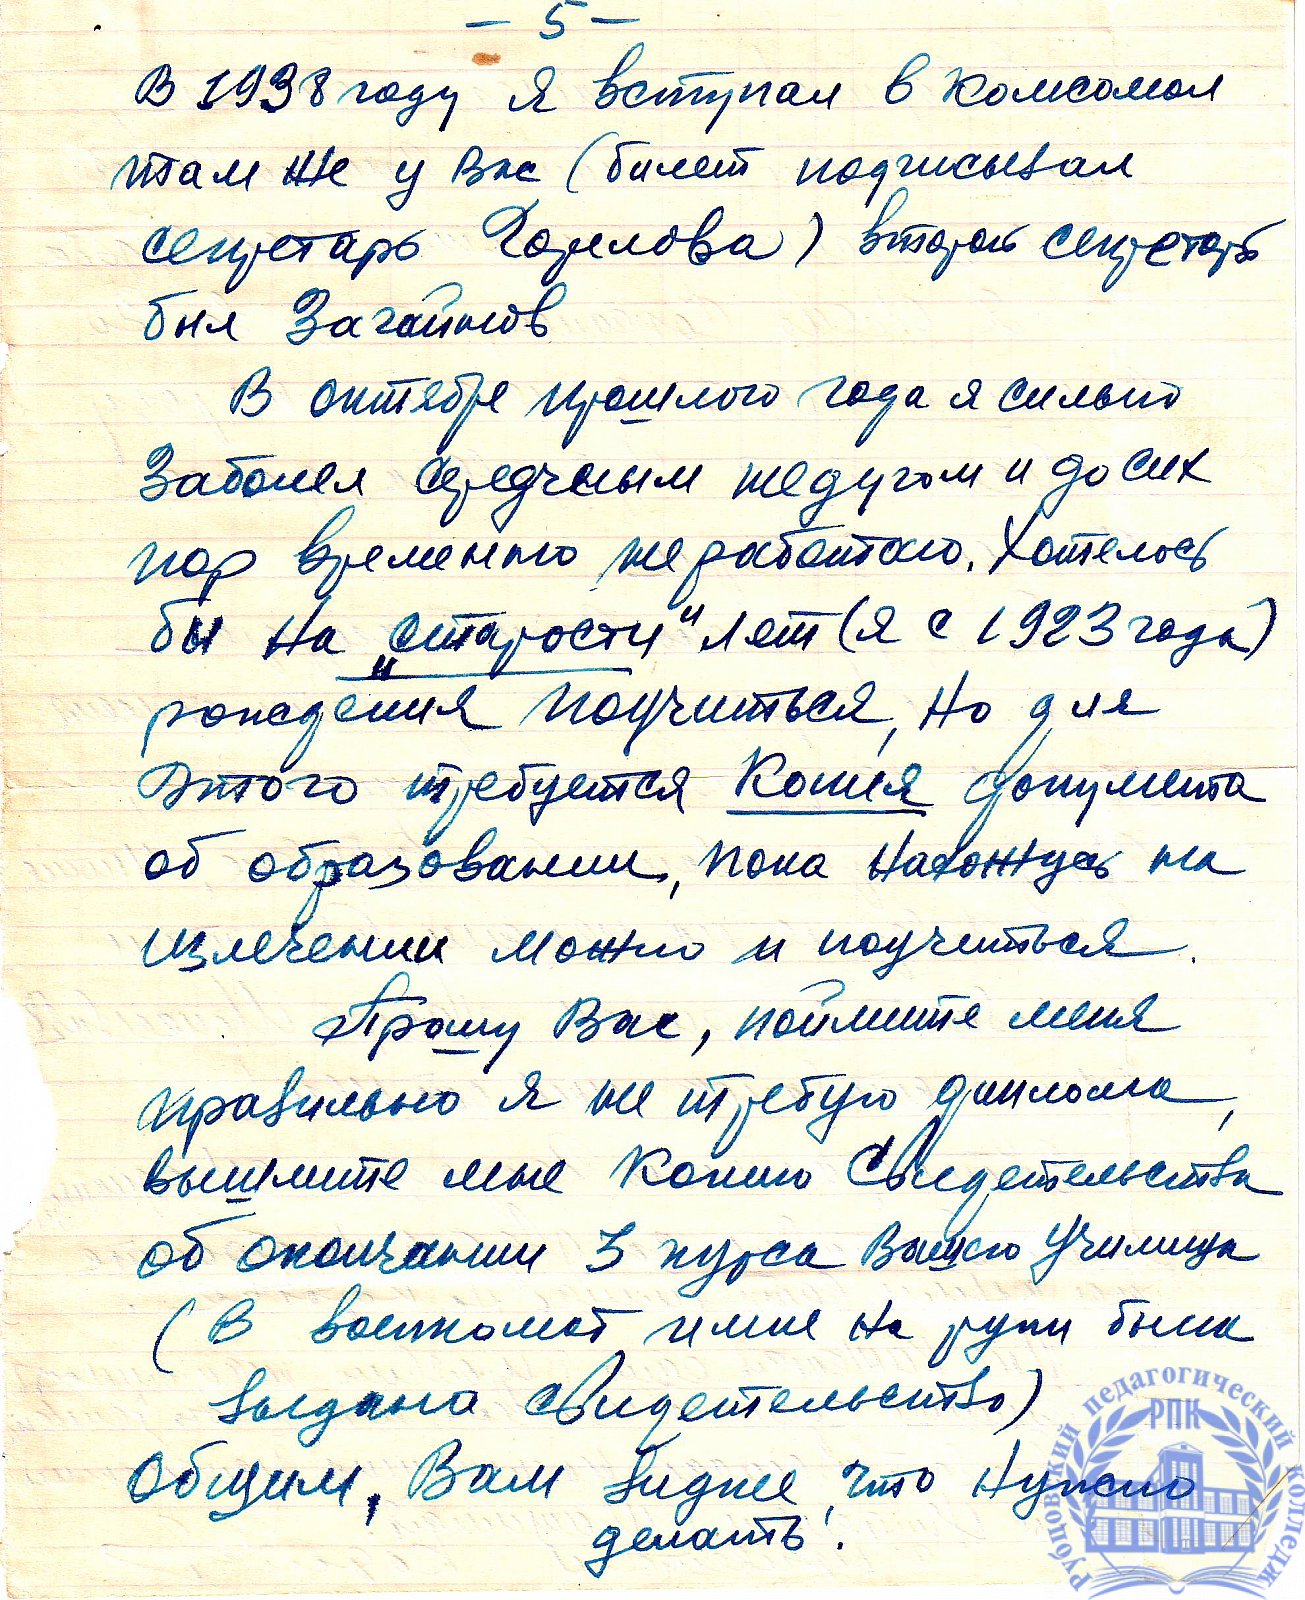 - 5 -
В 1938 году я вступал в комсомол
там же у Вас (билет подписывал
секретарь Горелова) второй секретарь
был Загайнов
В октябре прошлого года я сильно
Заболел сердечным недугом и до сих
пор временно не работаю. Хотелось
бы на „старости" лет (я с 1923 года)
рождения поучиться, но для
этого требуется Копия документа
об образовании, пока нахожусь на
излечении можно и поучиться.
Прошу Вас, поймите меня
правильно я не требую диплома,
вышлите мне Копию Свидетельства
об окончании 3 курса Вашего Училища
(В военкомат и мне на руки была
выдана свидетельство)
Общим, Вам виднее, что нужно
делать!
Рубцовский педагогический колледж
РПК